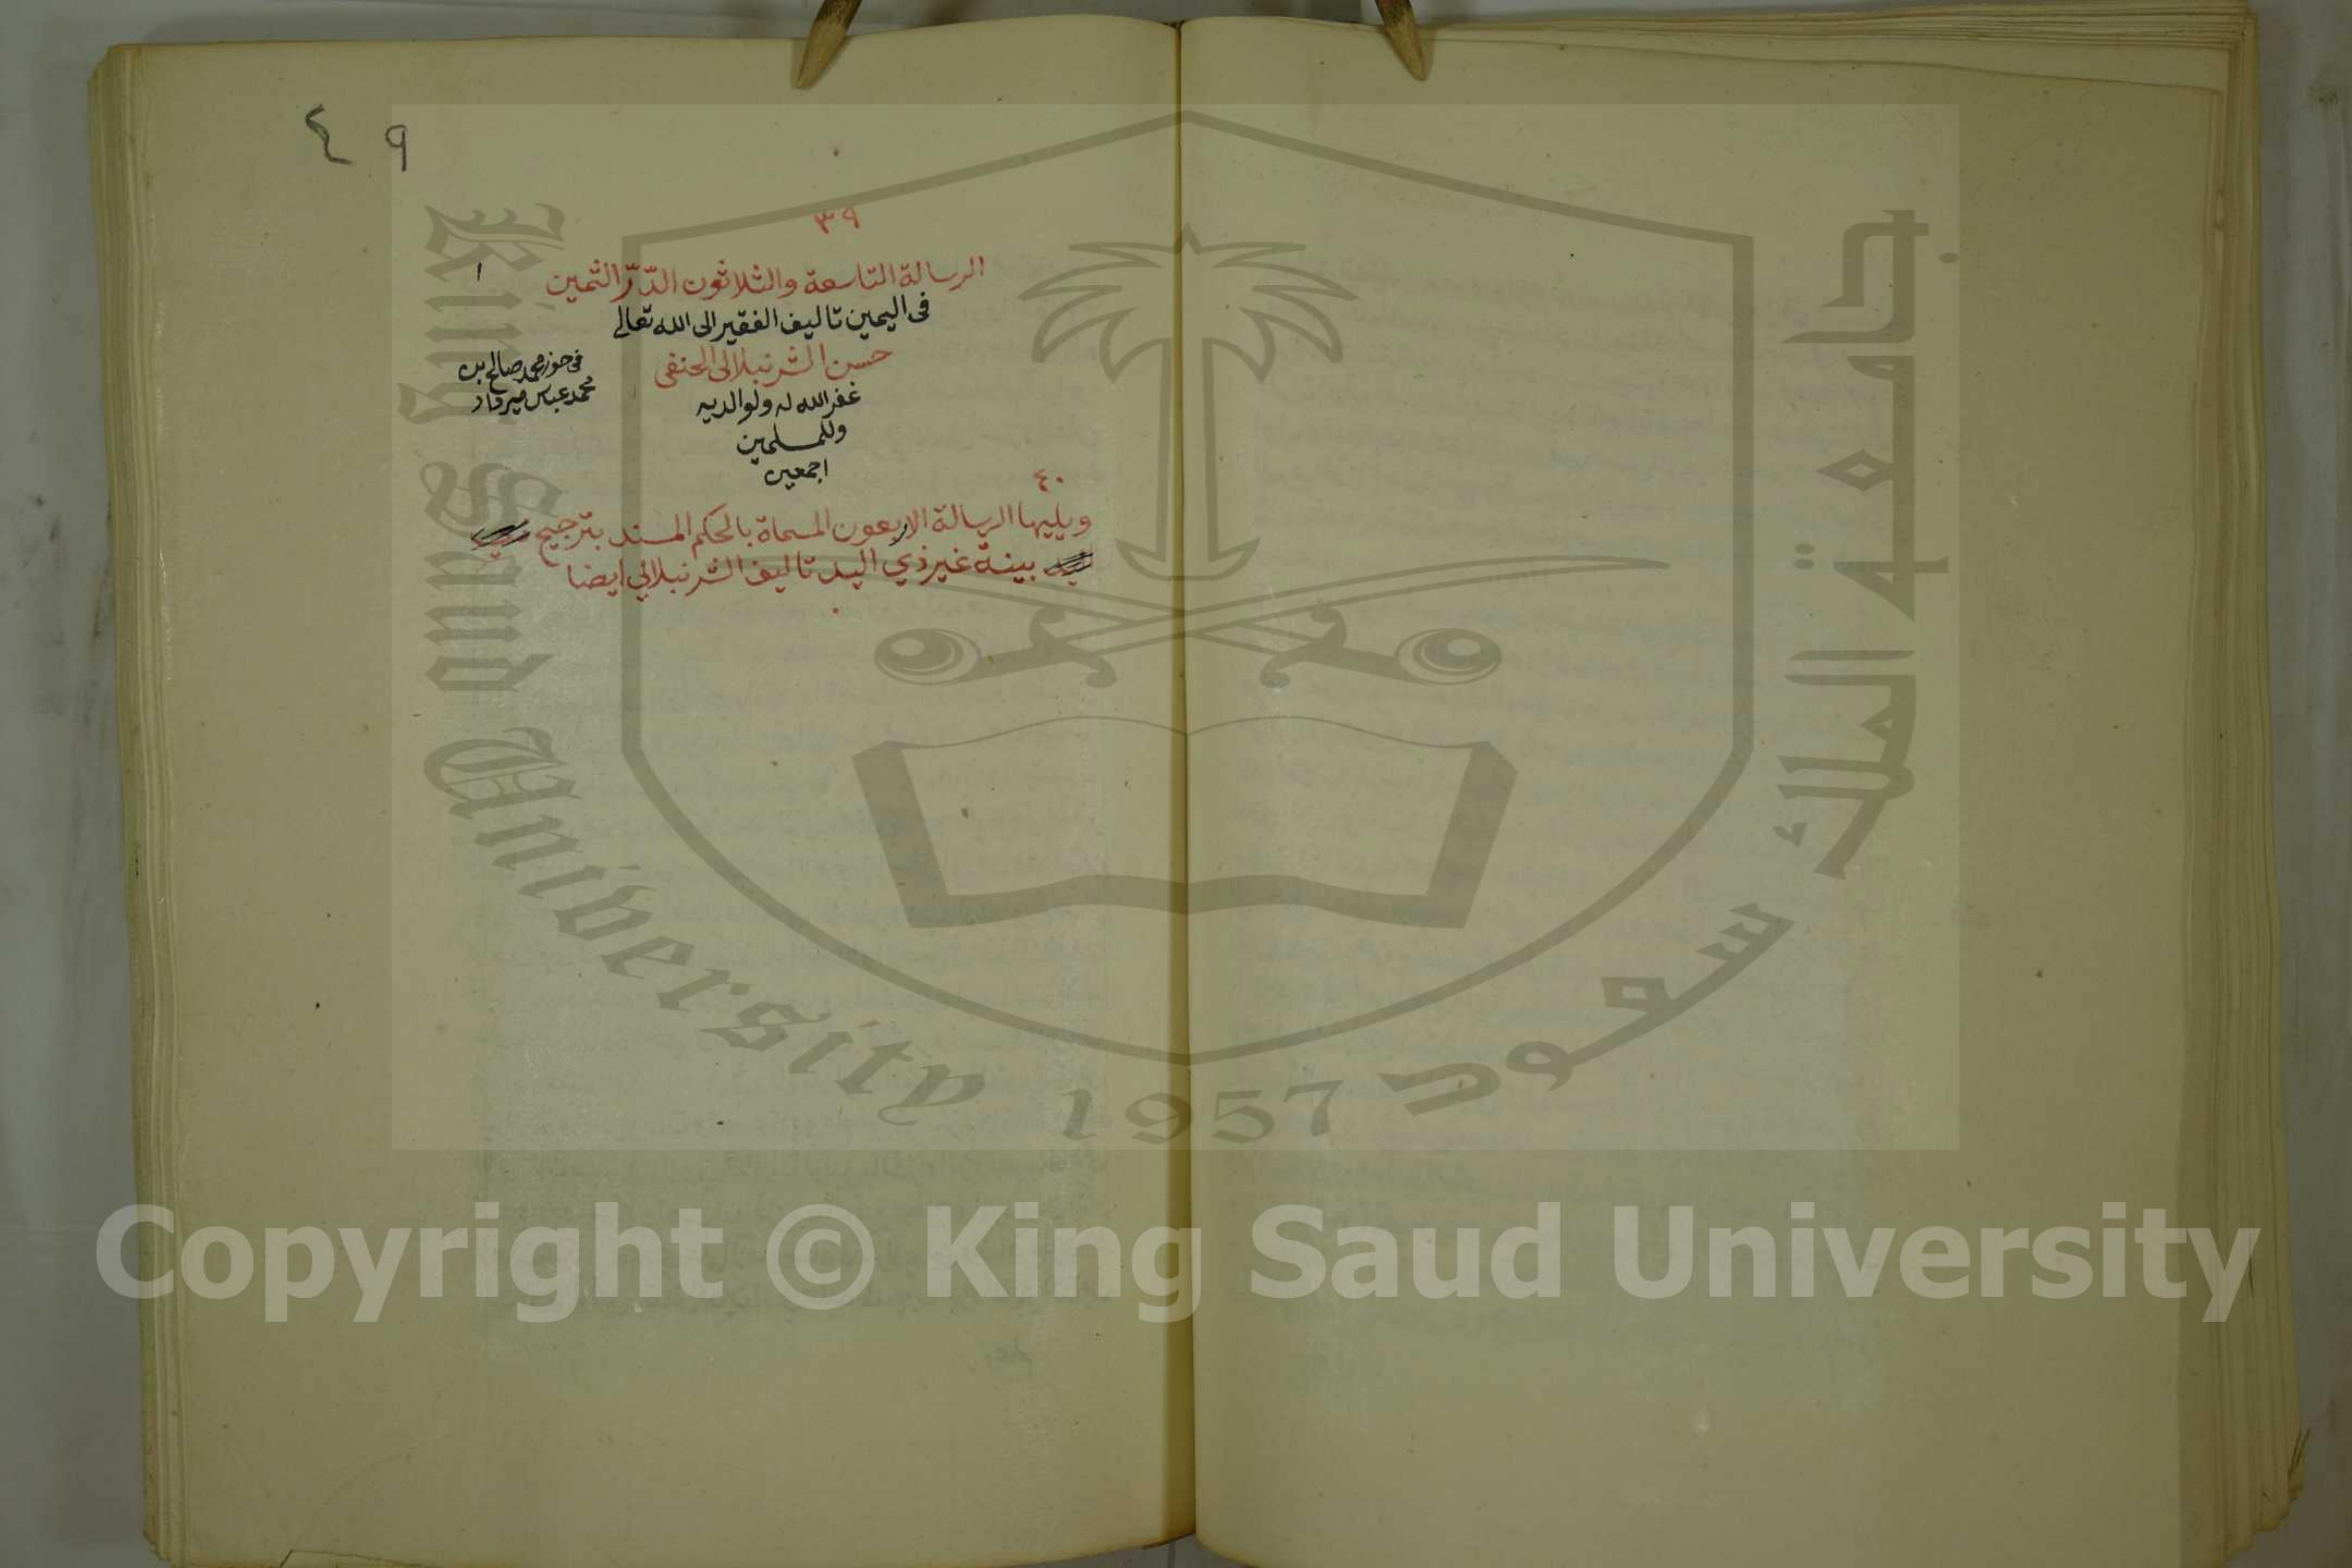 ٤٩
٣٩
الرسالة التاسعة والثلاثون الدّرّ الثمين
١
فى اليمين تاليف الفقير الى الله تعالى
حسن الشرنبلالى الحنفى
غفر الله له ولوالديه
وللمسلمين
اجمعين
فى حوز محمد صالح بن
محمد عباس ميرداد
٤٠
ويليها الرسالة الاربعون المسماة بالحكم المسند بترجيح
بينة غير ذي اليد تاليف الشرنبلالي ايضا
King Saud University 1957
جامعة الملك سعود
Copyright © King Saud University